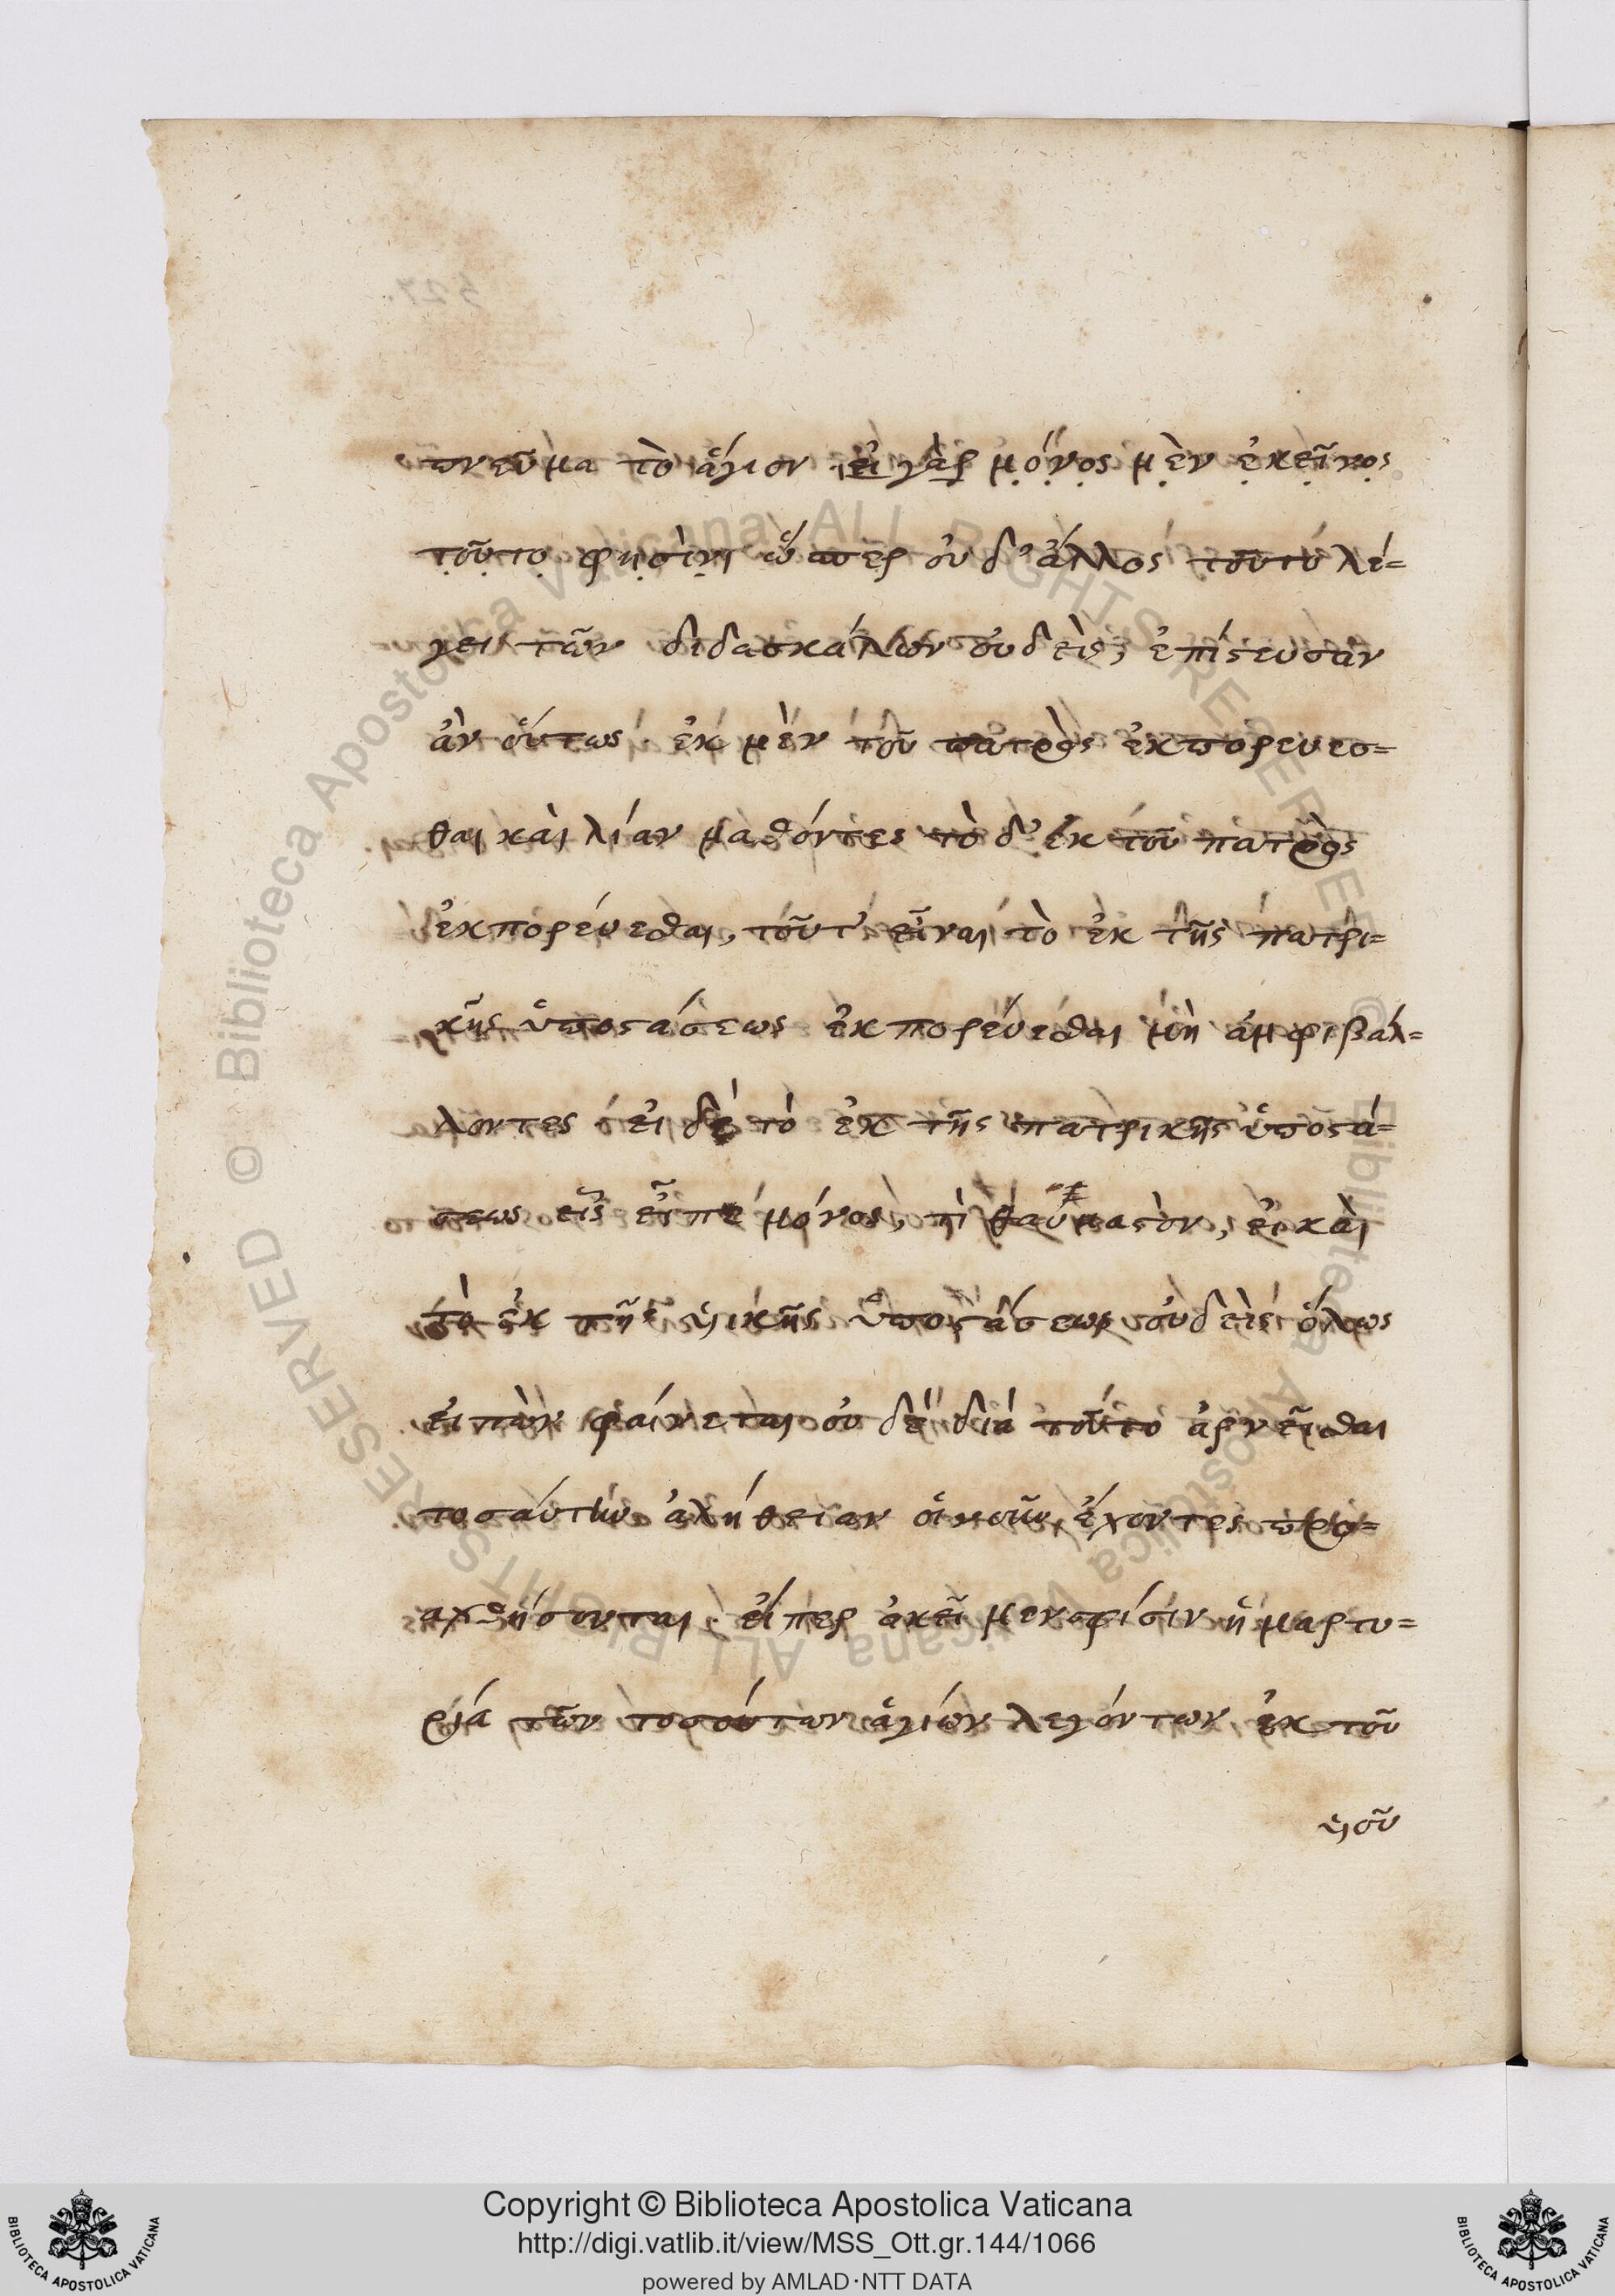 πνεῦμα τὸ ἅγιον. εἰ γὰρ μόνος μὲν ἐκεῖνος
τοῦτο φησὶν, ὥσπερ οὐδ' ἄλλος τουτὶ λέ=
γει τῶν διδασκάλων οὐδεὶς, ἐπίστευσαν
ἀν οὕτως. ἐκ μὲν τοῦ πατρὸς ἐκπορευεσ=
θαι καὶ λίαν μαθόντες τὸ δ' ἐκ τοῦ πατρὸς
ἐκπορεύεσθαι, τοῦτ' εἶναι τὸ ἐκ τῆς πατρι=
κῆς ὑποστάσεως ἐκπορεύεσθαι μὴ ἀμφιβάλ=
λοντες· εἰ δὲ τὸ ἐκ τῆς πατρικῆς ὑποστά=
σεως εἷς εἶπε μόνος, τί θαυμαστὸν, εἰ καὶ
τὸ ἐκ τῆς υἱικῆς ὑποστάσεως οὐδεὶς ὅλως
εἰπὼν φαίνεται οὐ δὲ διὰ τοῦτο ἀρνεῖσθαι
τοσαύτην ἀλήθειαν οἱ νοῦν ἔχοντες προ=
αχθήσονται. εἴπερ ἀκεῖ μεν φίσιν ἡ μαρτυ=
ρία τῶν τοσούτων ἁγίων λεγόντων ἐκ τοῦ
υἱοῦ
Copyright © Biblioteca Apostolica Vaticana
http://digi.vatlib.it/view/MSS_Ott.gr.144/1066
powered by AMLAD·NTT DATA
BIBLIOTECA APOSTOLICA VATICANA
BIBLIOTECA APOSTOLICA VATICANA
© Biblioteca Apostolica Vaticana ALL RIGHTS RESERVED
© Biblioteca Apostolica Vaticana ALL RIGHTS RESERVED